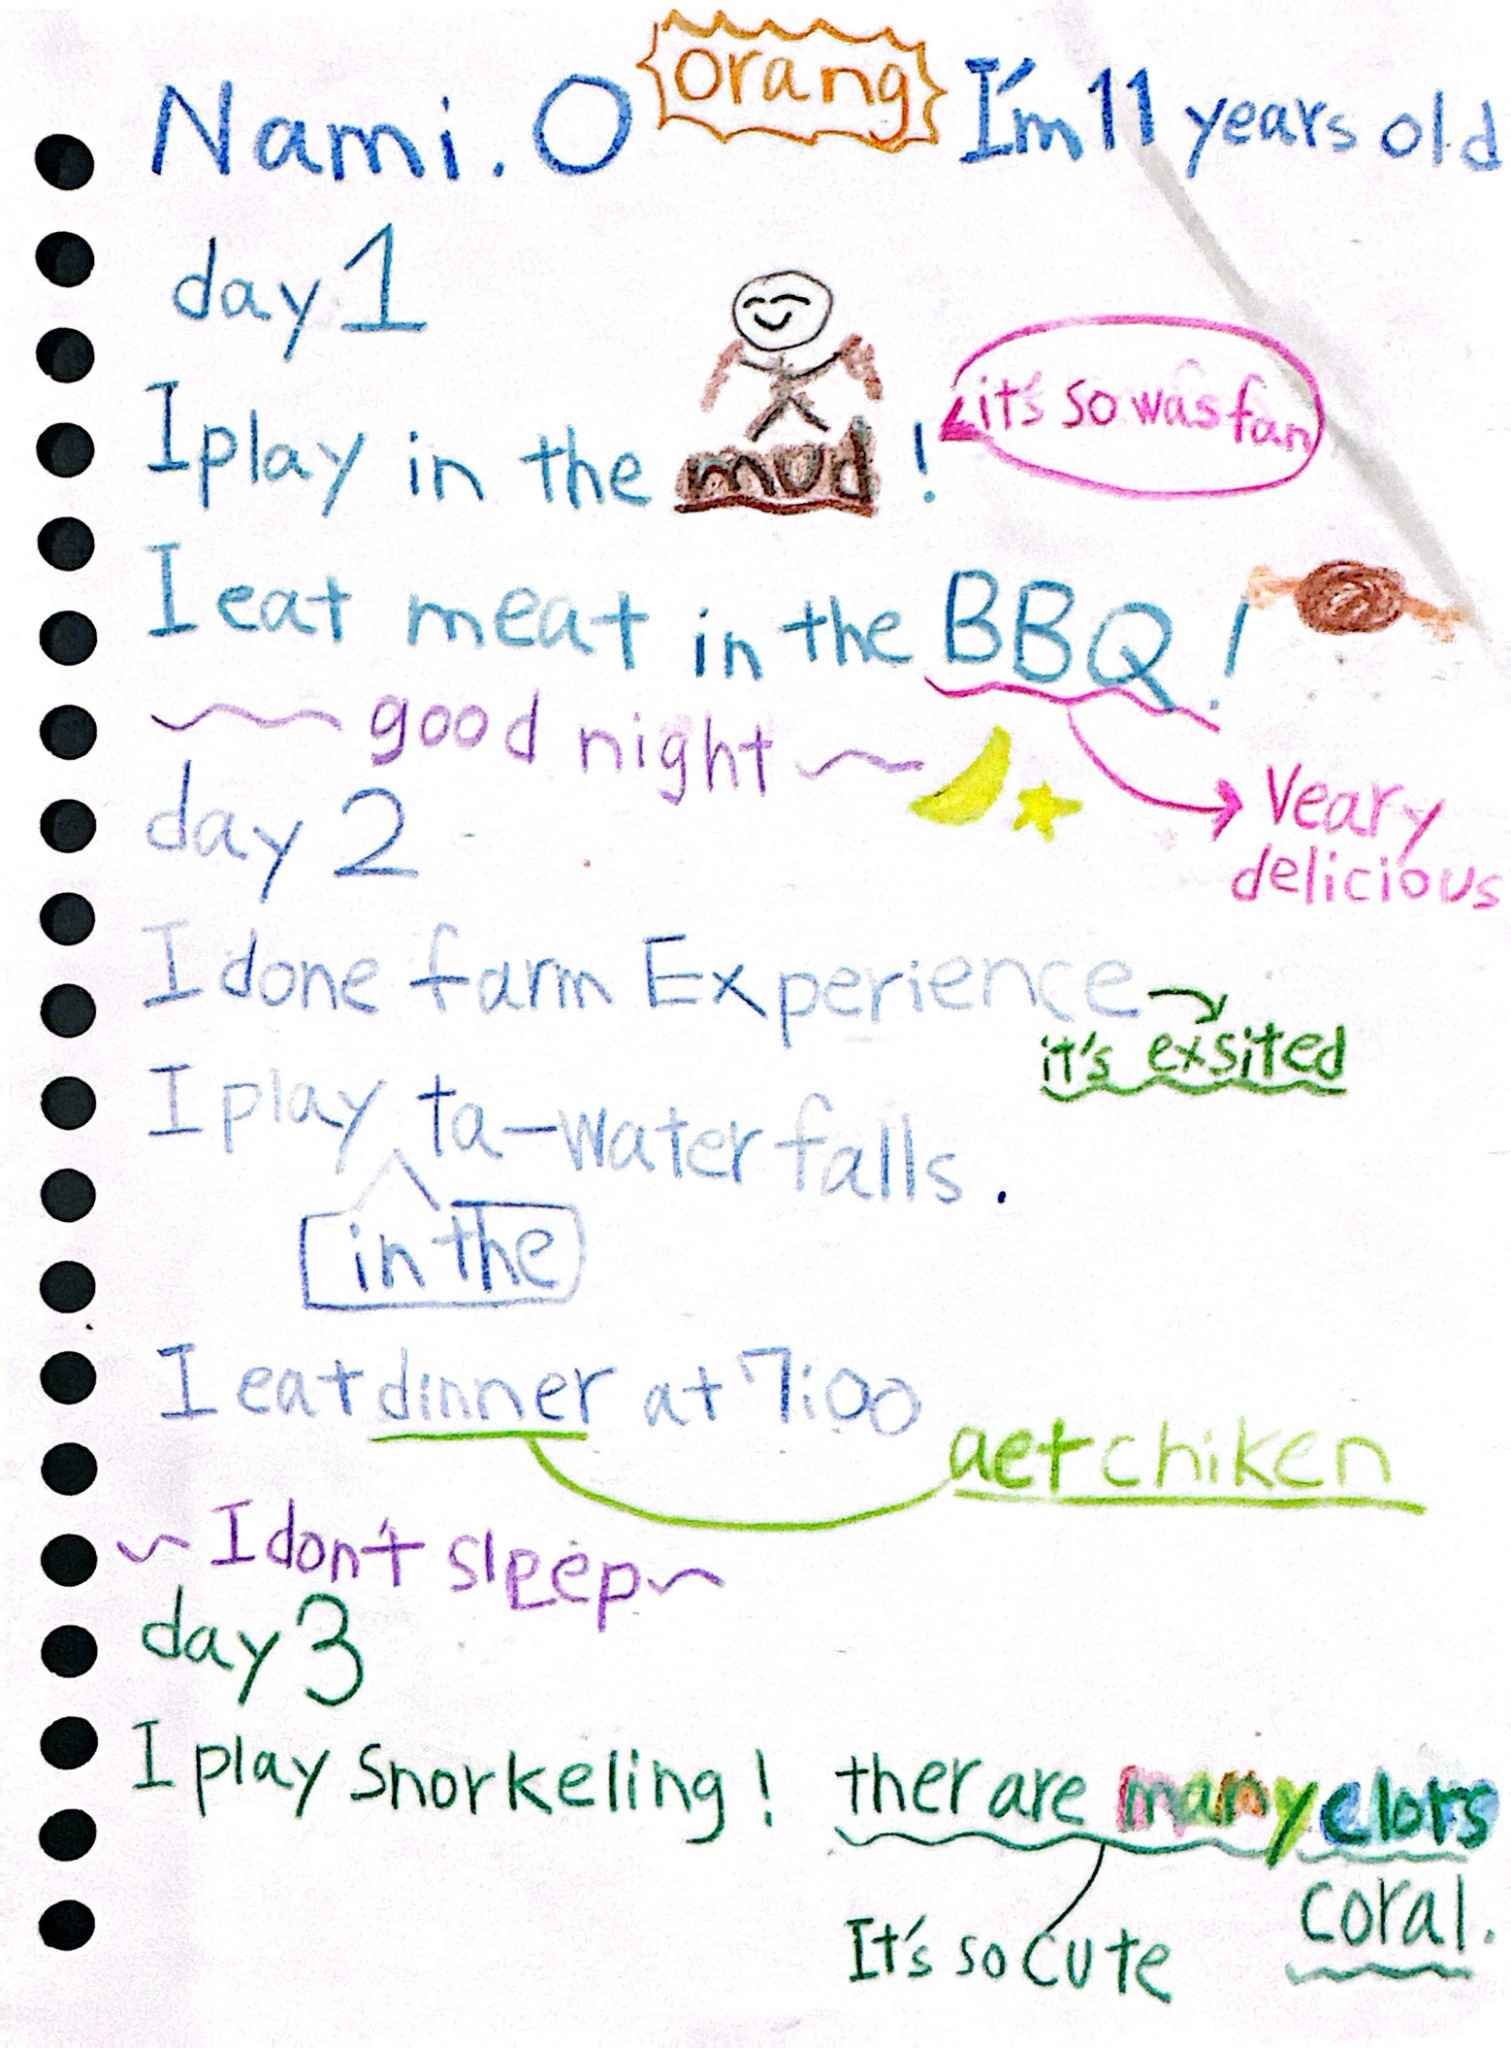 Nami. O orang I'm 11 years old
day 1
I play in the mud! it's so was fan
I eat meat in the BBQ!
~~ good night ~
Veary
delicious
day 2
I done farm Experience
it's exsited
I play ta-water falls.
in the
I eat dinner at 7:00
aet chiken
~ I don't sleep ~
day 3
I play snorkeling! ther are many clors
coral.
It's so cute